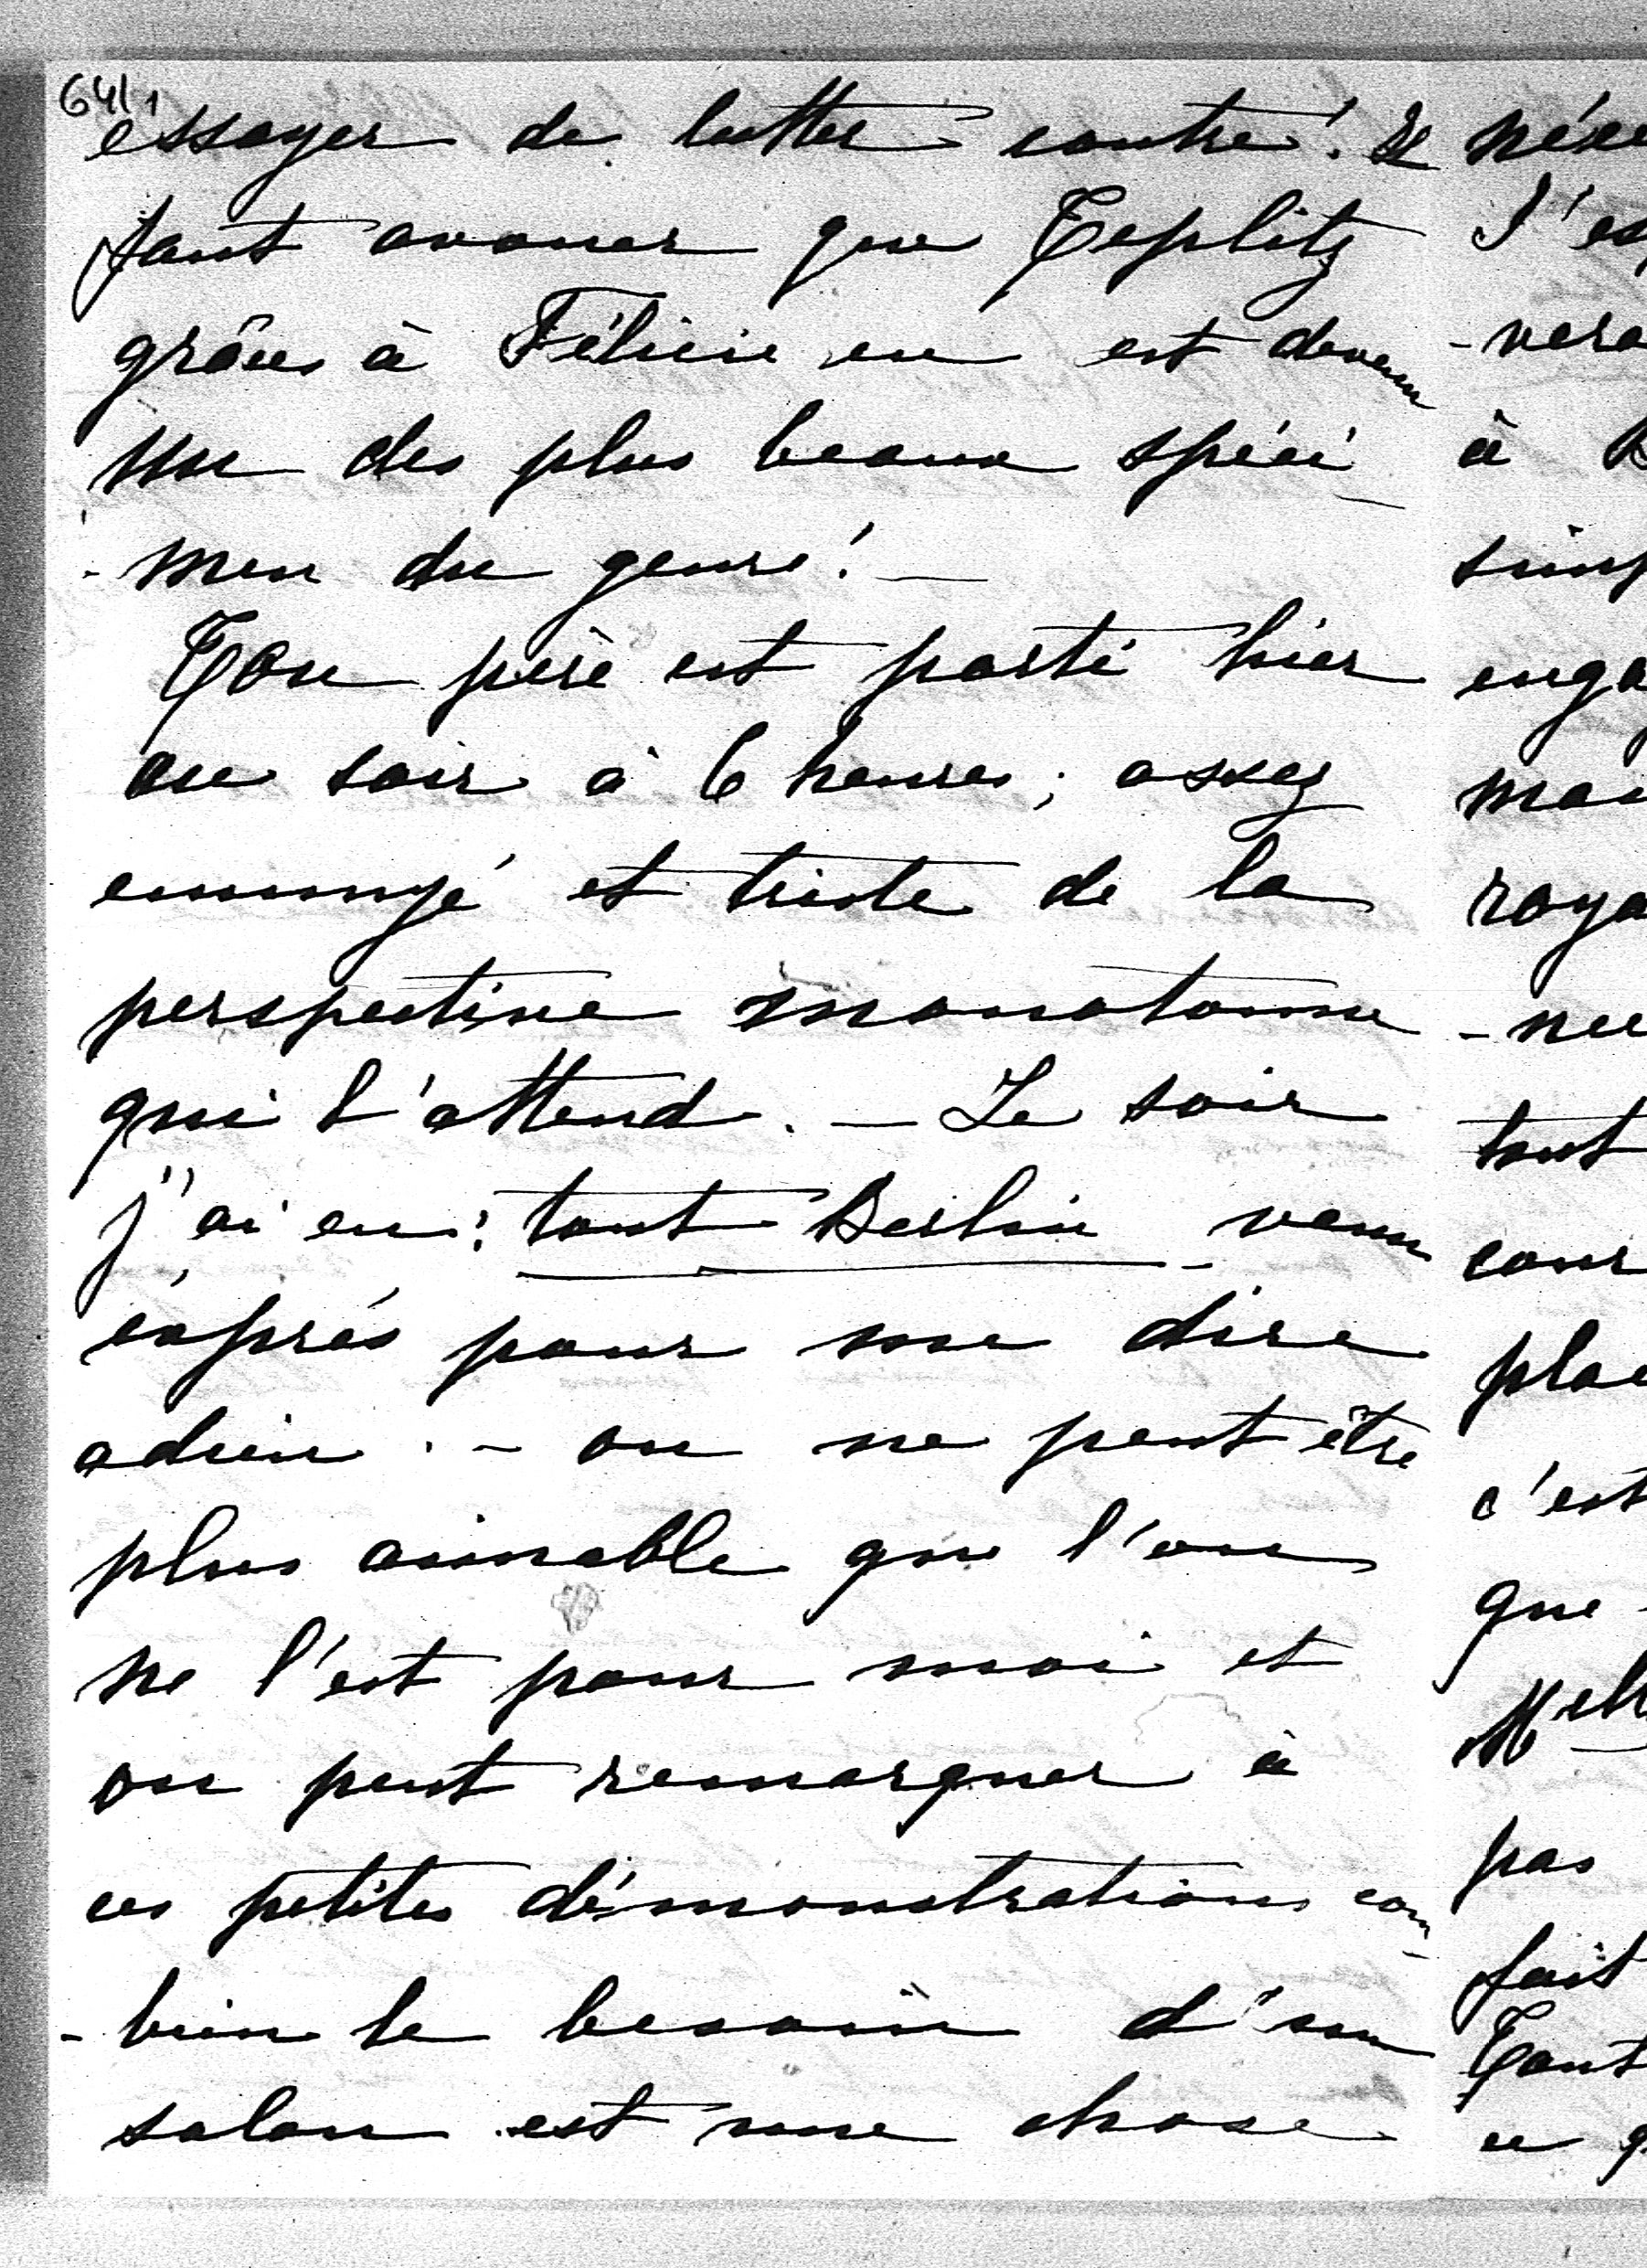 64/1
éssayer de lutter contre! Il
faut avouer que Teplitz
grâce à Félicie en est devenu
un des plus beaux spéci
-men du genre! —
Ton père est parti hier
au soir à 6 heures; assez
ennuyé et triste de la
perspective monotone
qui l'attend. — Le soir
j'ai eu: tout Berlin venu
éxprés pour me dire
adieu. - on ne peut être
plus aimable que l'on
ne l'est pour moi et
on peut remarquer à
ces petites démonstrations com
-bien le besoin d'un
salon est une chose
J'es
-vera
à
simp
enga
mai
roya
-nee
tout
cour
plac
c'est
que
Melle
pas
fait
Tout